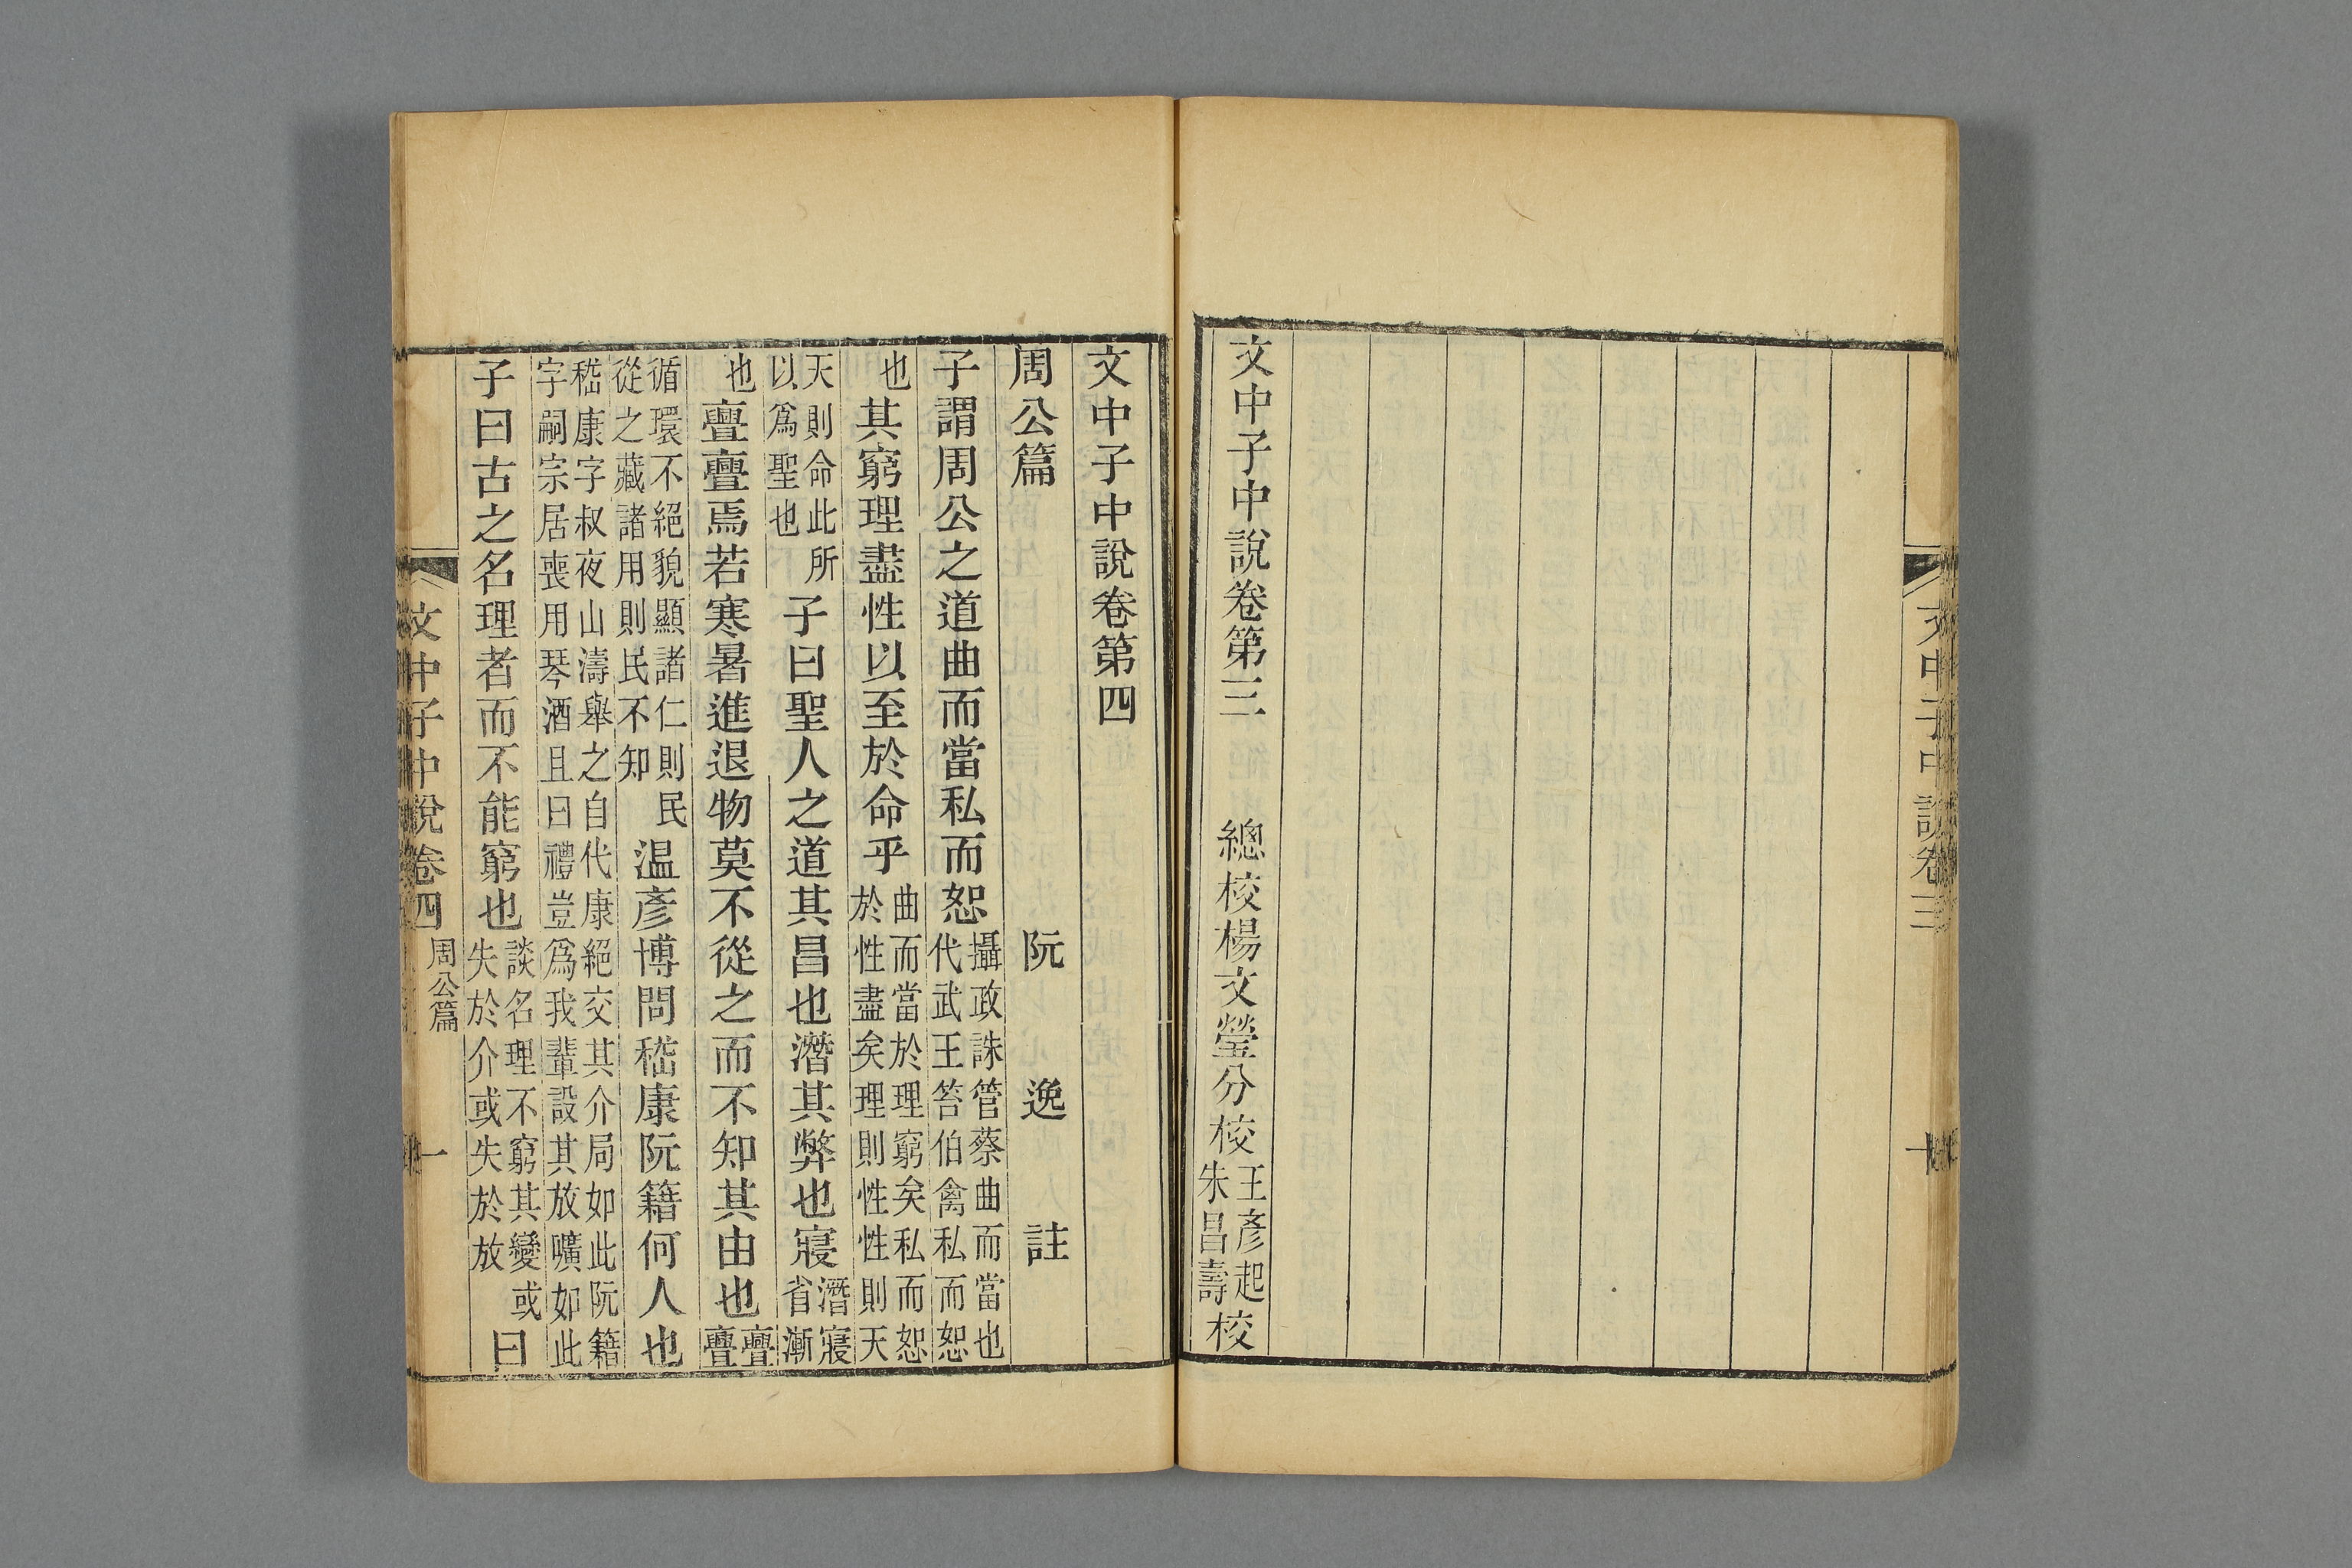 文中子中說卷三 十
文中子中說卷第三 總校楊文瑩分校王彥起朱昌壽校
文中子中說卷第四
周公篇 阮逸註
子謂周公之道曲而當私而恕攝政誅管蔡曲而當也代武王笞伯禽私而恕
也其窮理盡性以至於命乎曲而當於理窮矣私而恕於性盡矣理則性性則天
天則命此所以爲聖也子曰聖人之道其昌也潛其弊也寢潛寢省漸
也亹亹焉若寒暑進退物莫不從之而不知其由也亹亹
循環不絕貌顯諸仁則民從之藏諸用則民不知温彥博問嵇康阮籍何人也
嵇康字叔夜山濤舉之自代康絕交其介局如此阮籍字嗣宗居喪用琴酒且曰禮豈爲我輩設其放曠如此
子曰古之名理者而不能窮也談名理不窮其變或失於介或失於放曰
文中子中說卷四 周公篇 一